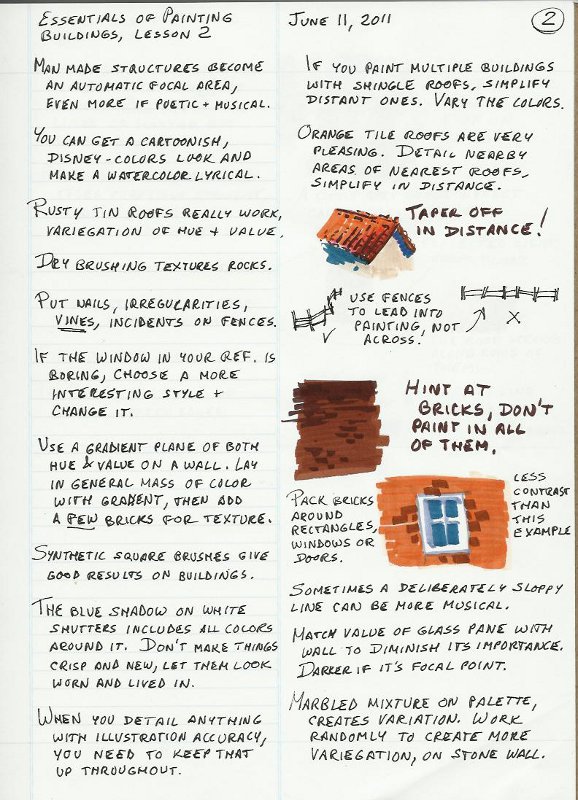 ESSENTIALS OF PAINTING
BUILDINGS, LESSON 2
MAN MADE STRUCTURES BECOME
AN AUTOMATIC FOCAL AREA,
EVEN MORE IF POETIC + MUSICAL.
YOU CAN GET A CARTOONISH,
DISNEY-COLORS LOOK AND
MAKE A WATERCOLOR LYRICAL.
RUSTY TIN ROOFS REALLY WORK,
VARIEGATION OF HUE + VALUE.
DRY BRUSHING TEXTURES ROCKS.
PUT NAILS, IRREGULARITIES,
VINES, INCIDENTS ON FENCES.
IF THE WINDOW IN YOUR REF. IS
BORING, CHOOSE A MORE
INTERESTING STYLE +
CHANGE IT.
USE A GRADIENT PLANE OF BOTH
HUE & VALUE ON A WALL. LAY
IN GENERAL MASS OF COLOR
WITH GRADIENT, THEN ADD
A FEW BRICKS FOR TEXTURE.
SYNTHETIC SQUARE BRUSHES GIVE
GOOD RESULTS ON BUILDINGS.
THE BLUE SHADOW ON WHITE
SHUTTERS INCLUDES ALL COLORS
AROUND IT. DON'T MAKE THINGS
CRISP AND NEW, LET THEM LOOK
WORN AND LIVED IN.
WHEN YOU DETAIL ANYTHING
WITH ILLUSTRATION ACCURACY,
YOU NEED TO KEEP THAT
UP THROUGHOUT.
JUNE 11, 2011
2
IF YOU PAINT MULTIPLE BUILDINGS
WITH SHINGLE ROOFS, SIMPLIFY
DISTANT ONES. VARY THE COLORS.
ORANGE TILE ROOFS ARE VERY
PLEASING. DETAIL NEARBY
AREAS OF NEAREST ROOFS,
SIMPLIFY IN DISTANCE.
TAPER OFF
IN DISTANCE!
USE FENCES
TO LEAD INTO
PAINTING, NOT
ACROSS.
HINT AT
BRICKS, DON'T
PAINT IN ALL
OF THEM.
PACK BRICKS
AROUND
RECTANGLES,
WINDOWS OR
DOORS.
LESS
CONTRAST
THAN
THIS
EXAMPLE
SOMETIMES A DELIBERATELY SLOPPY
LINE CAN BE MORE MUSICAL.
MATCH VALUE OF GLASS PANE WITH
WALL TO DIMINISH ITS IMPORTANCE.
DARKER IF IT'S FOCAL POINT.
MARBLED MIXTURE ON PALETTE,
CREATES VARIATION. WORK
RANDOMLY TO CREATE MORE
VARIEGATION, ON STONE WALL.